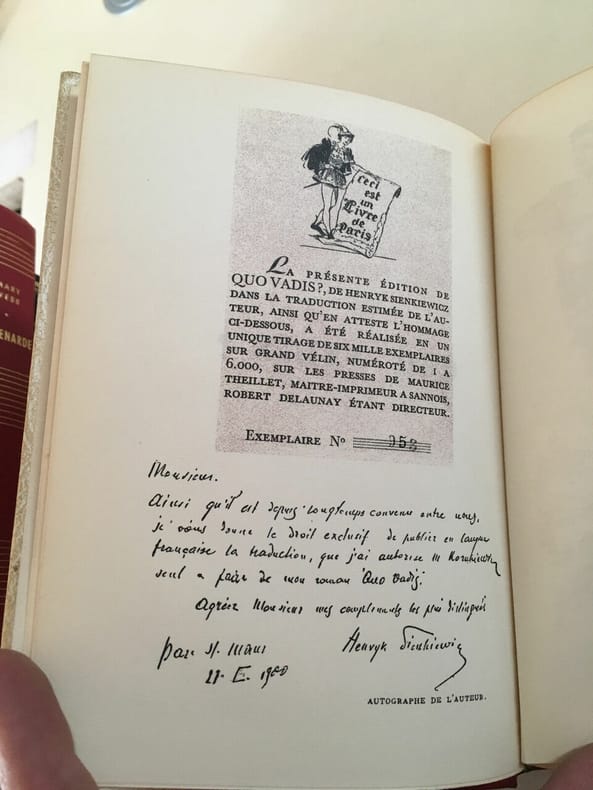 Ceci
est
un
Livre
de
Paris
LA PRÉSENTE ÉDITION DE
QUO VADIS?, DE HENRYK SIENKIEWICZ
DANS LA TRADUCTION ESTIMÉE DE L'AU-
TEUR, AINSI QU'EN ATTESTE L'HOMMAGE
CI-DESSOUS, A ÉTÉ RÉALISÉE EN UN
UNIQUE TIRAGE DE SIX MILLE EXEMPLAIRES
SUR GRAND VÉLIN, NUMÉROTÉ DE 1 A
6.000, SUR LES PRESSES DE MAURICE
THEILLET, MAITRE-IMPRIMEUR A SANNOIS,
ROBERT DELAUNAY ÉTANT DIRECTEUR.
EXEMPLAIRE No 953
Monsieur.
Ainsi qu'il est depuis longtemps convenu entre nous,
je vous donne le droit exclusif de publier en langue
française la traduction, que j'ai autorisé M
seul a faire de mon roman Quo Vadis.
Agréez Monsieur mes compliments les plus distingués
Parc St. Maur
1900
Henryk Sienkiewicz
AUTOGRAPHE DE L'AUTEUR.
ENARDE